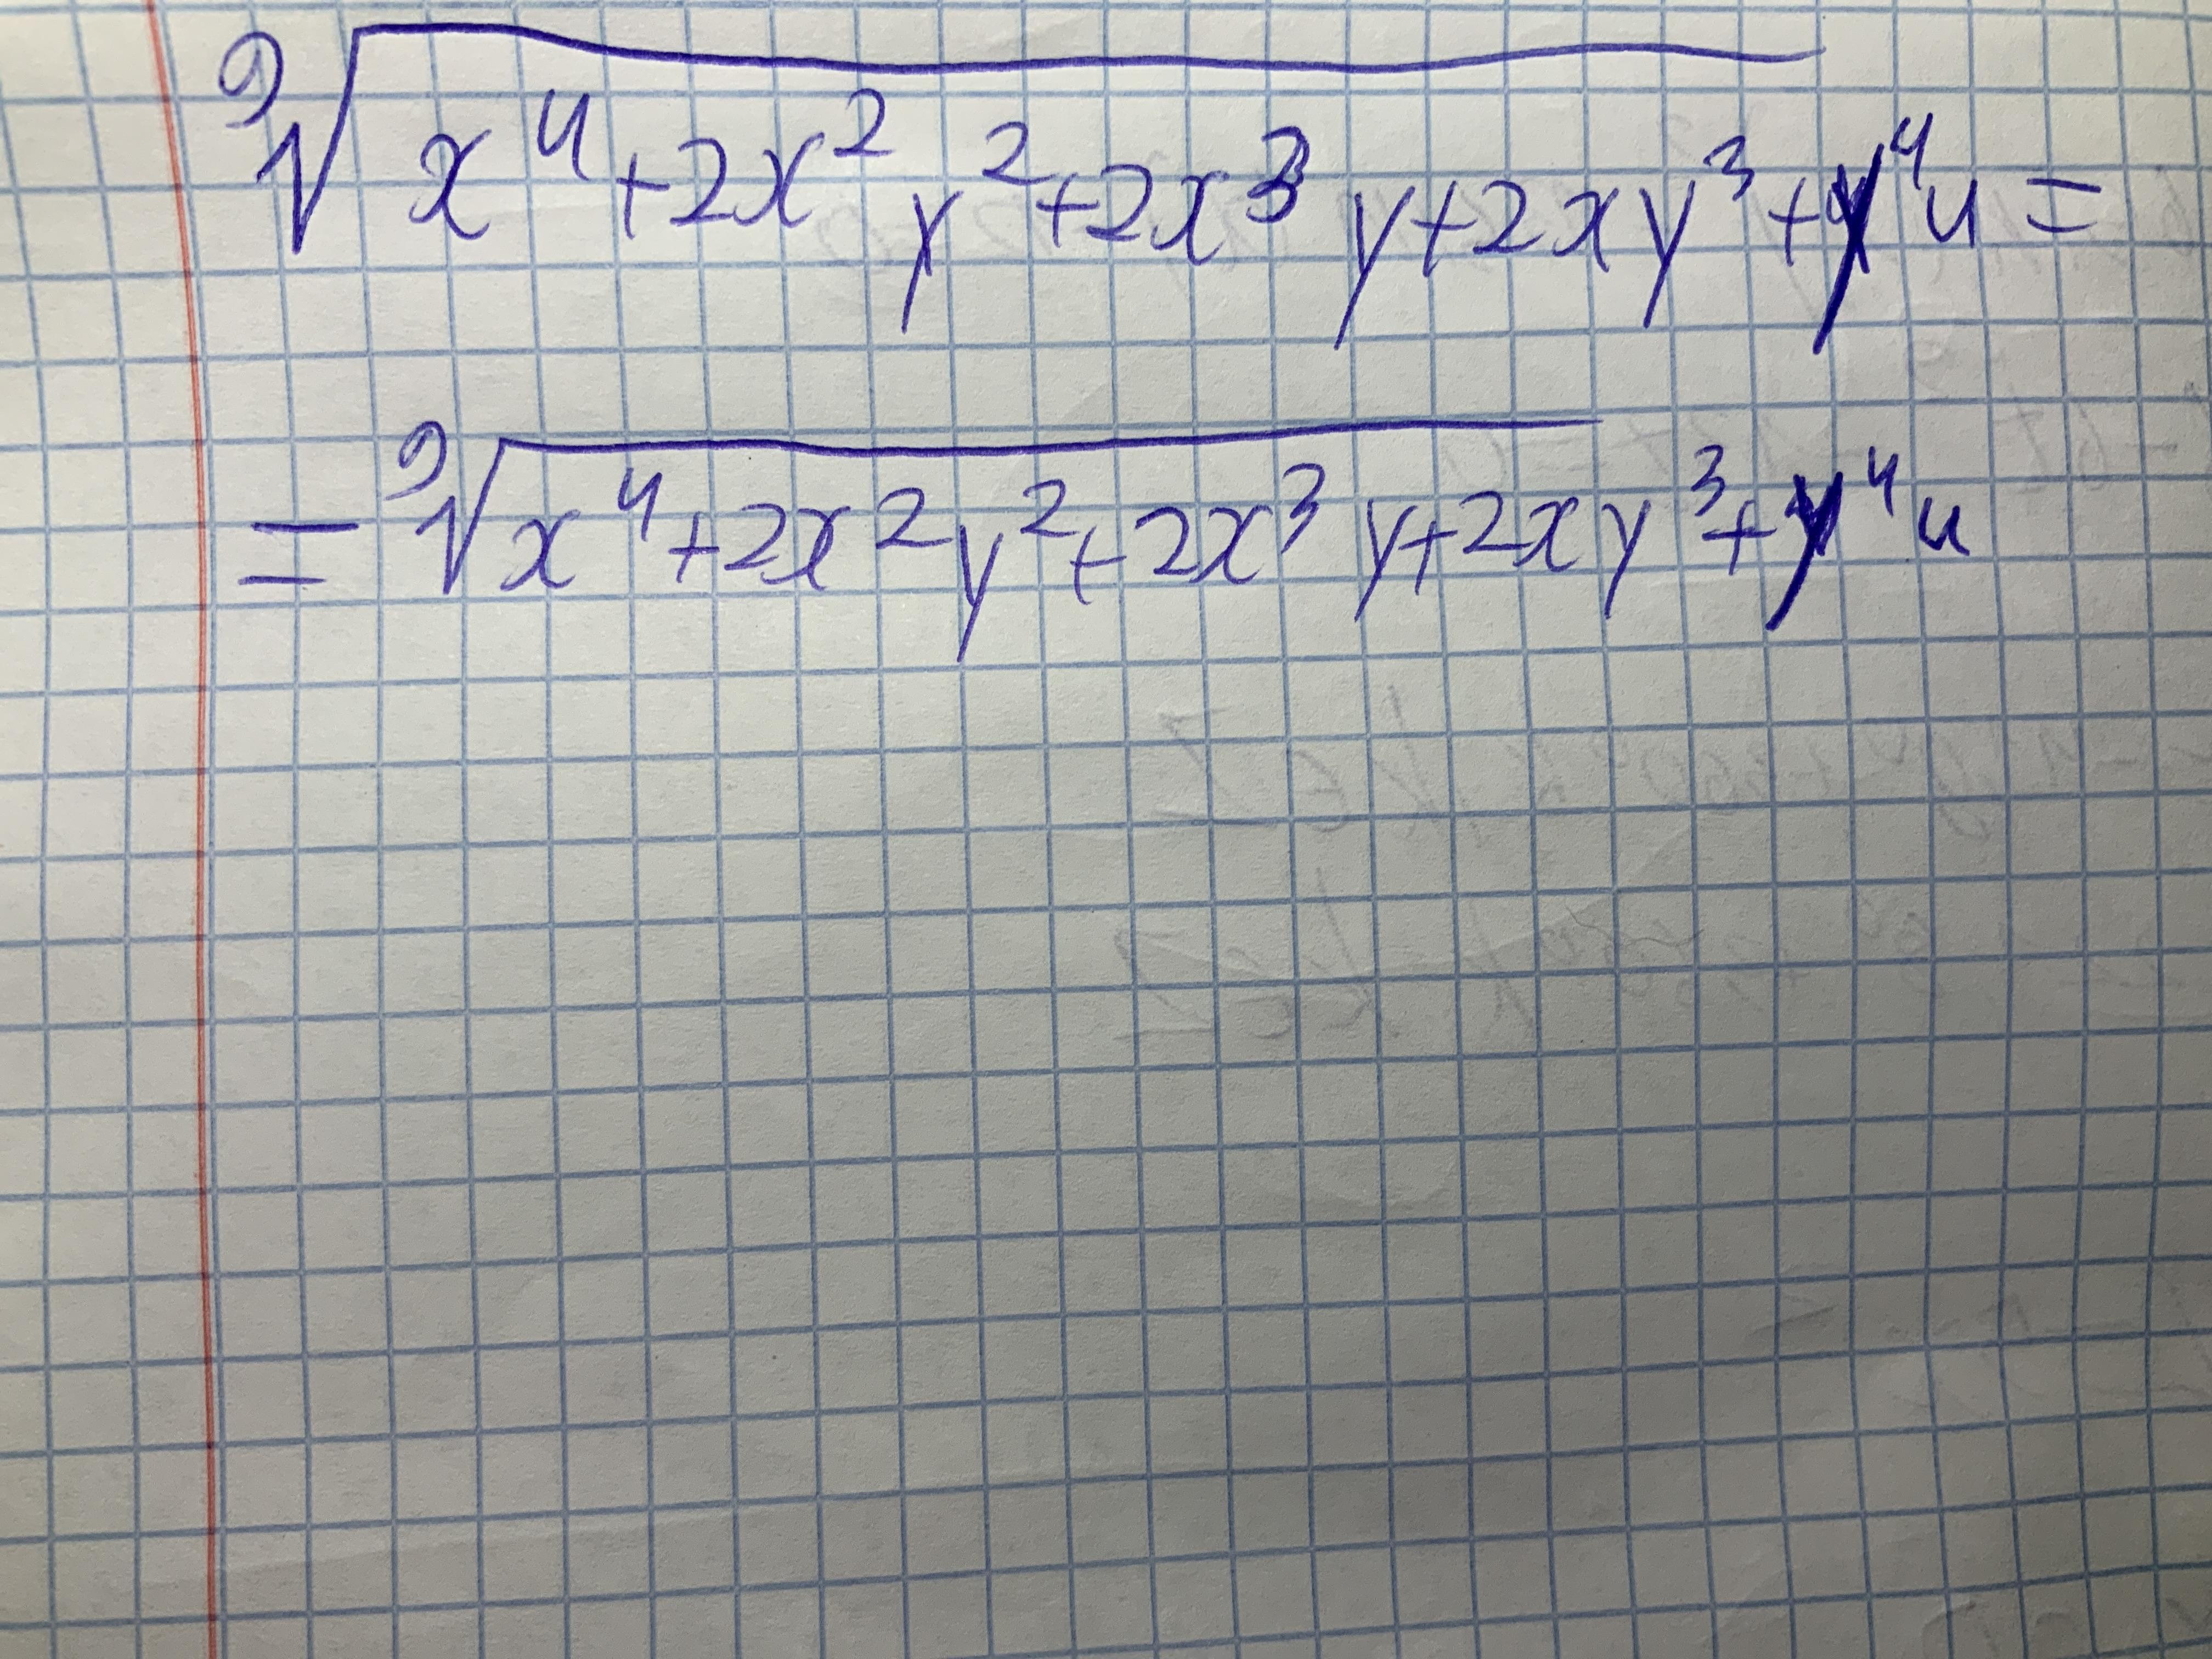 ⁹√x⁴+2x²y²+2x³y+2xy³+y⁴u=
=⁹√x⁴+2x²y²+2x³y+2xy³+y⁴u